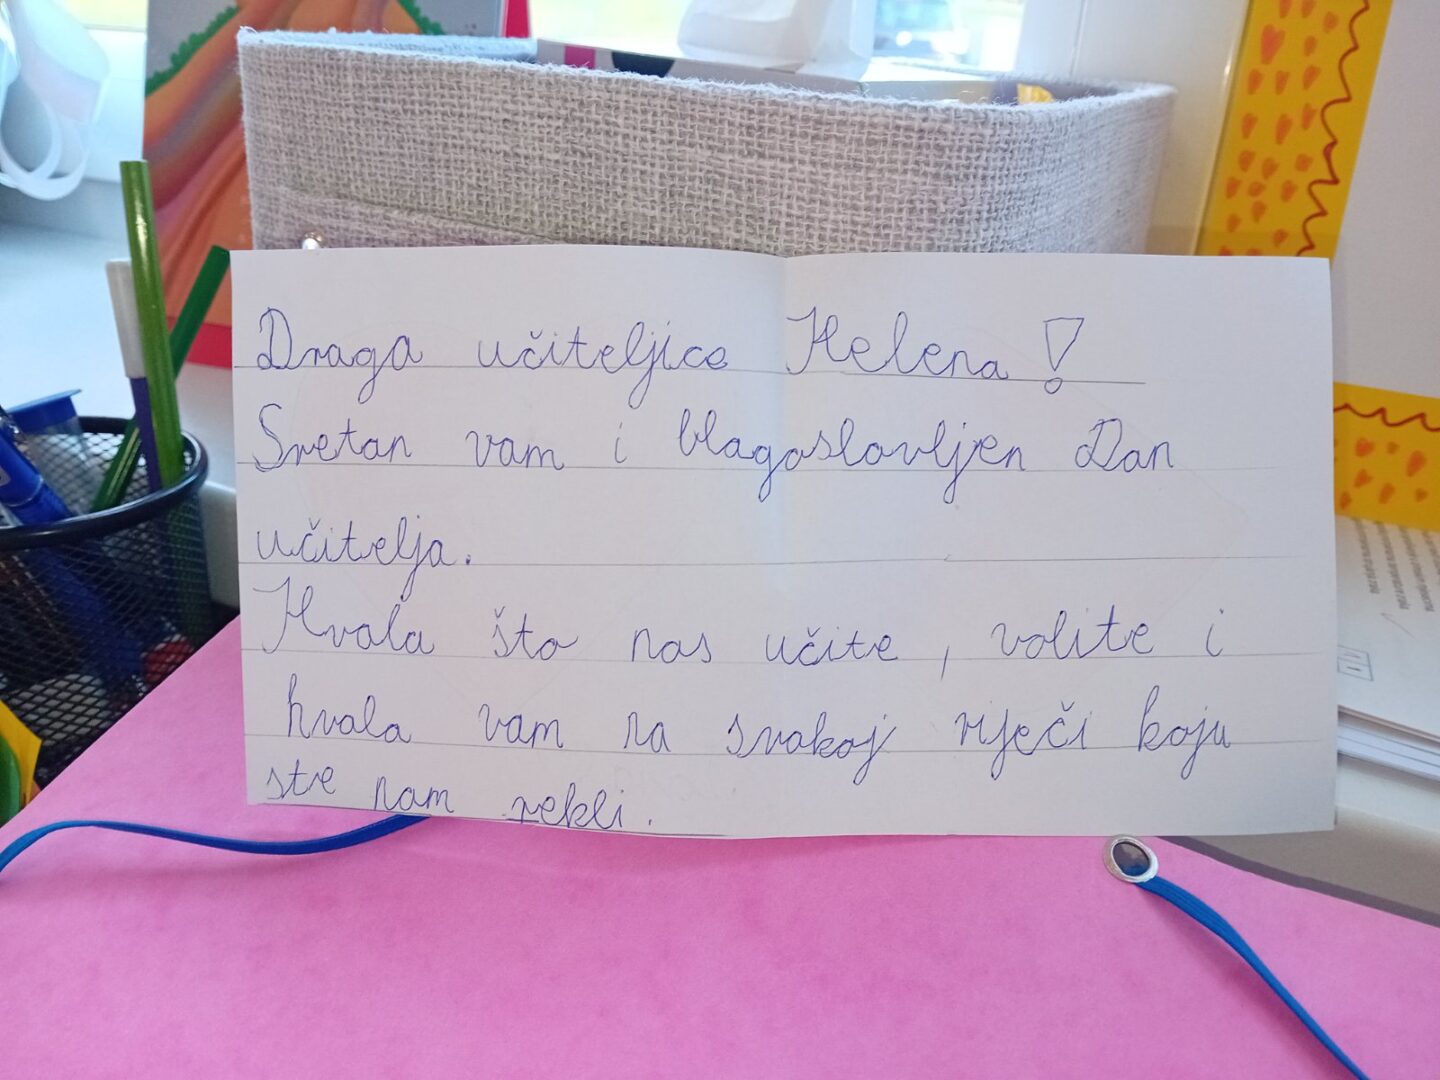 Draga učiteljice Helena!
Sretan vam i blagoslovljen Dan
učitelja.
Hvala što nas učite, volite i
hvala vam na svakoj riječi koju
ste nam rekli.